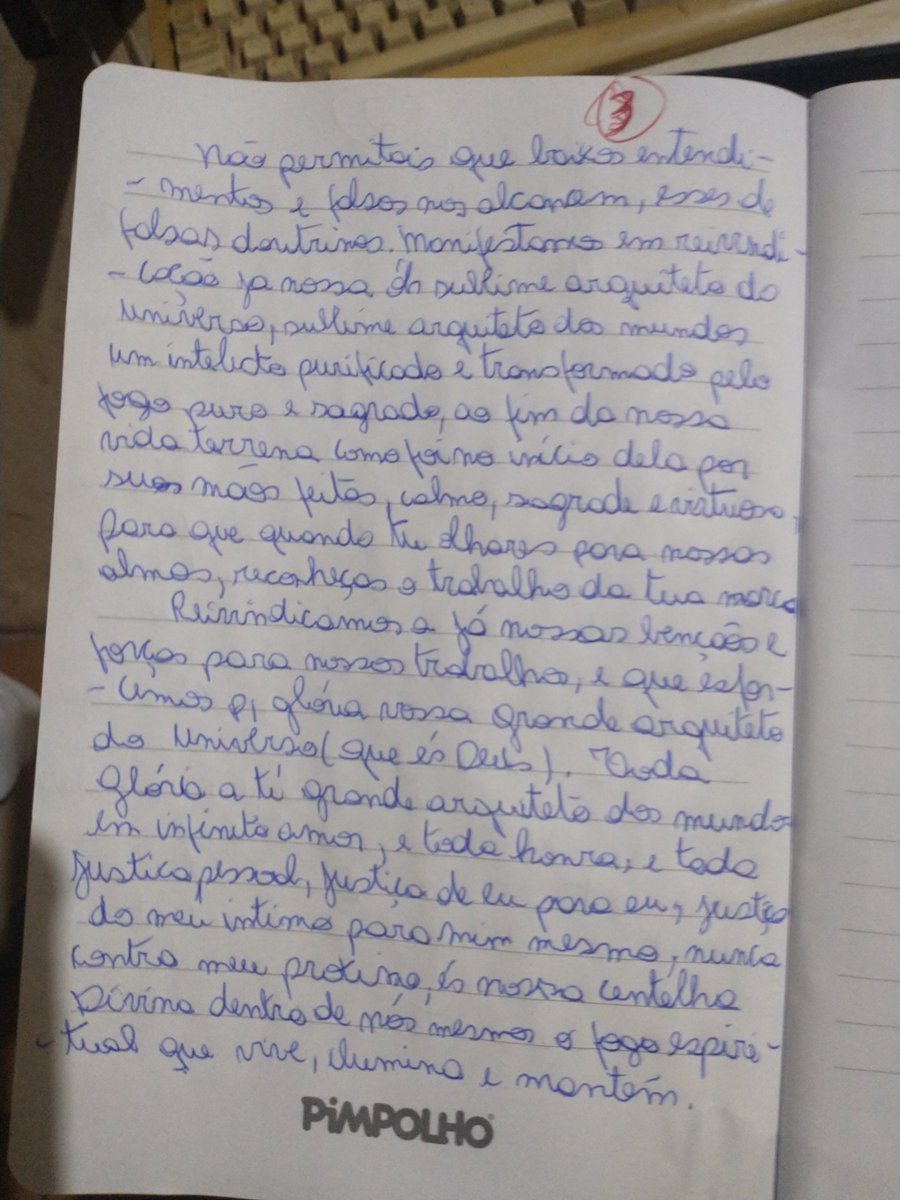 3
Não permitais que baixos entendi-
- mentos e falsos nos alcancem, esses de
falsas doutrinas. Manifestamos em reivindi-
- cação ja nossa óh sublime arquiteto do
universo, sublime arquiteto dos mundos
um intelecto purificado e transformado pelo
fogo puro e sagrado, ao fim da nossa
vida terrena como foi no início dela por
suas mãos feitas, calmo, sagrado e virtuoso
para que quando tu olhares para nossas
almas, reconheças o trabalho da tua marca
Reivindicamos a já nossas benções e
forças para nossos trabalhos, e que esfor-
- çamos p, glória vossa grande arquiteto
do universo (que és Deus). Toda
glória a ti grande arquiteto dos mundos
em infinito amor, e toda honra, e toda
justiça pessoal, justiça de eu para eu, justiça
do meu íntimo para mim mesmo, nunca
contra meu próximo, és nossa centelha
Divina dentro de nós mesmos o fogo espiri-
- tual que vive, ilumina e mantém.
PIMPOLHO